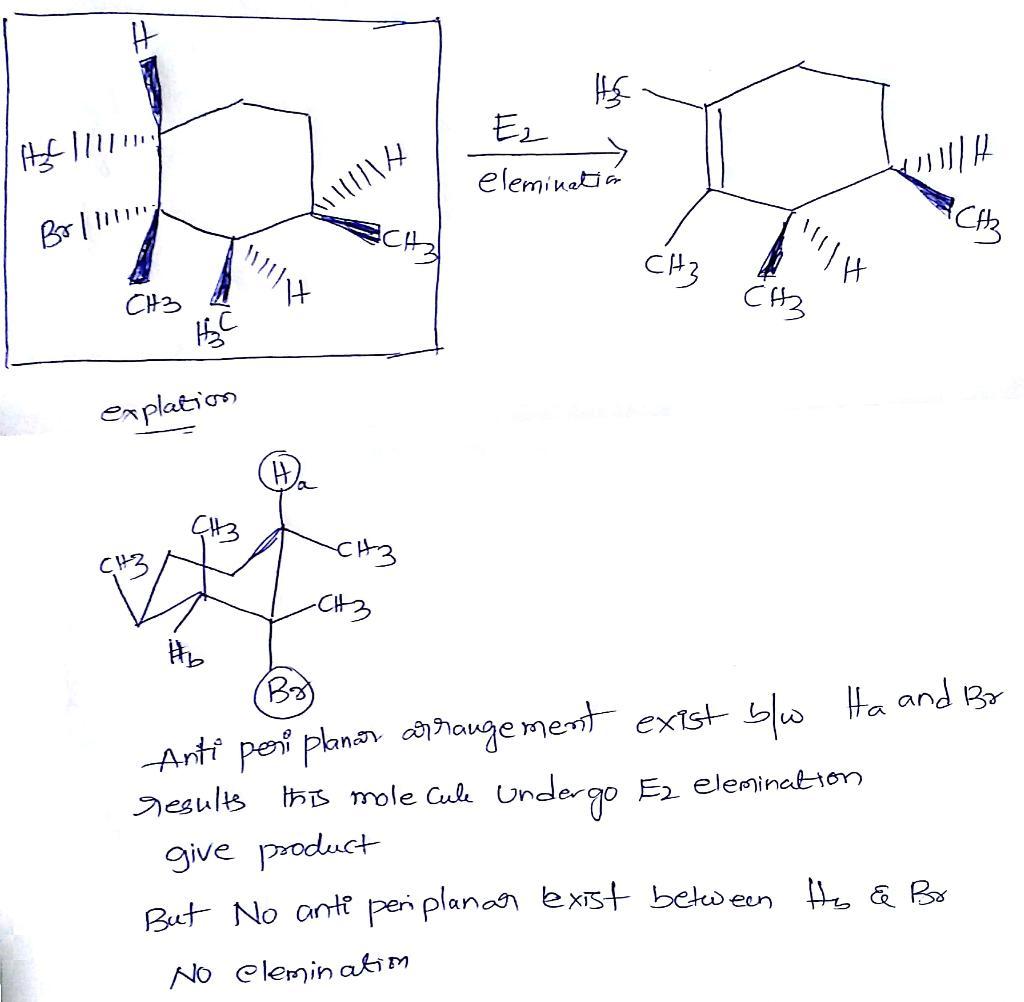 H
H3C
Br
CH3
H3C
H
H
CH3
E2
elemination
H3C
CH3
CH3
H
H
CH3
explation
Ha
CH3
CH3
CH3
CH3
Hb
Br
Anti peri planar arrangement exist b/w Ha and Br
results this mole cule undergo E2 elemination
give product
But No anti peri planar exist between Hb & Br
No elemination